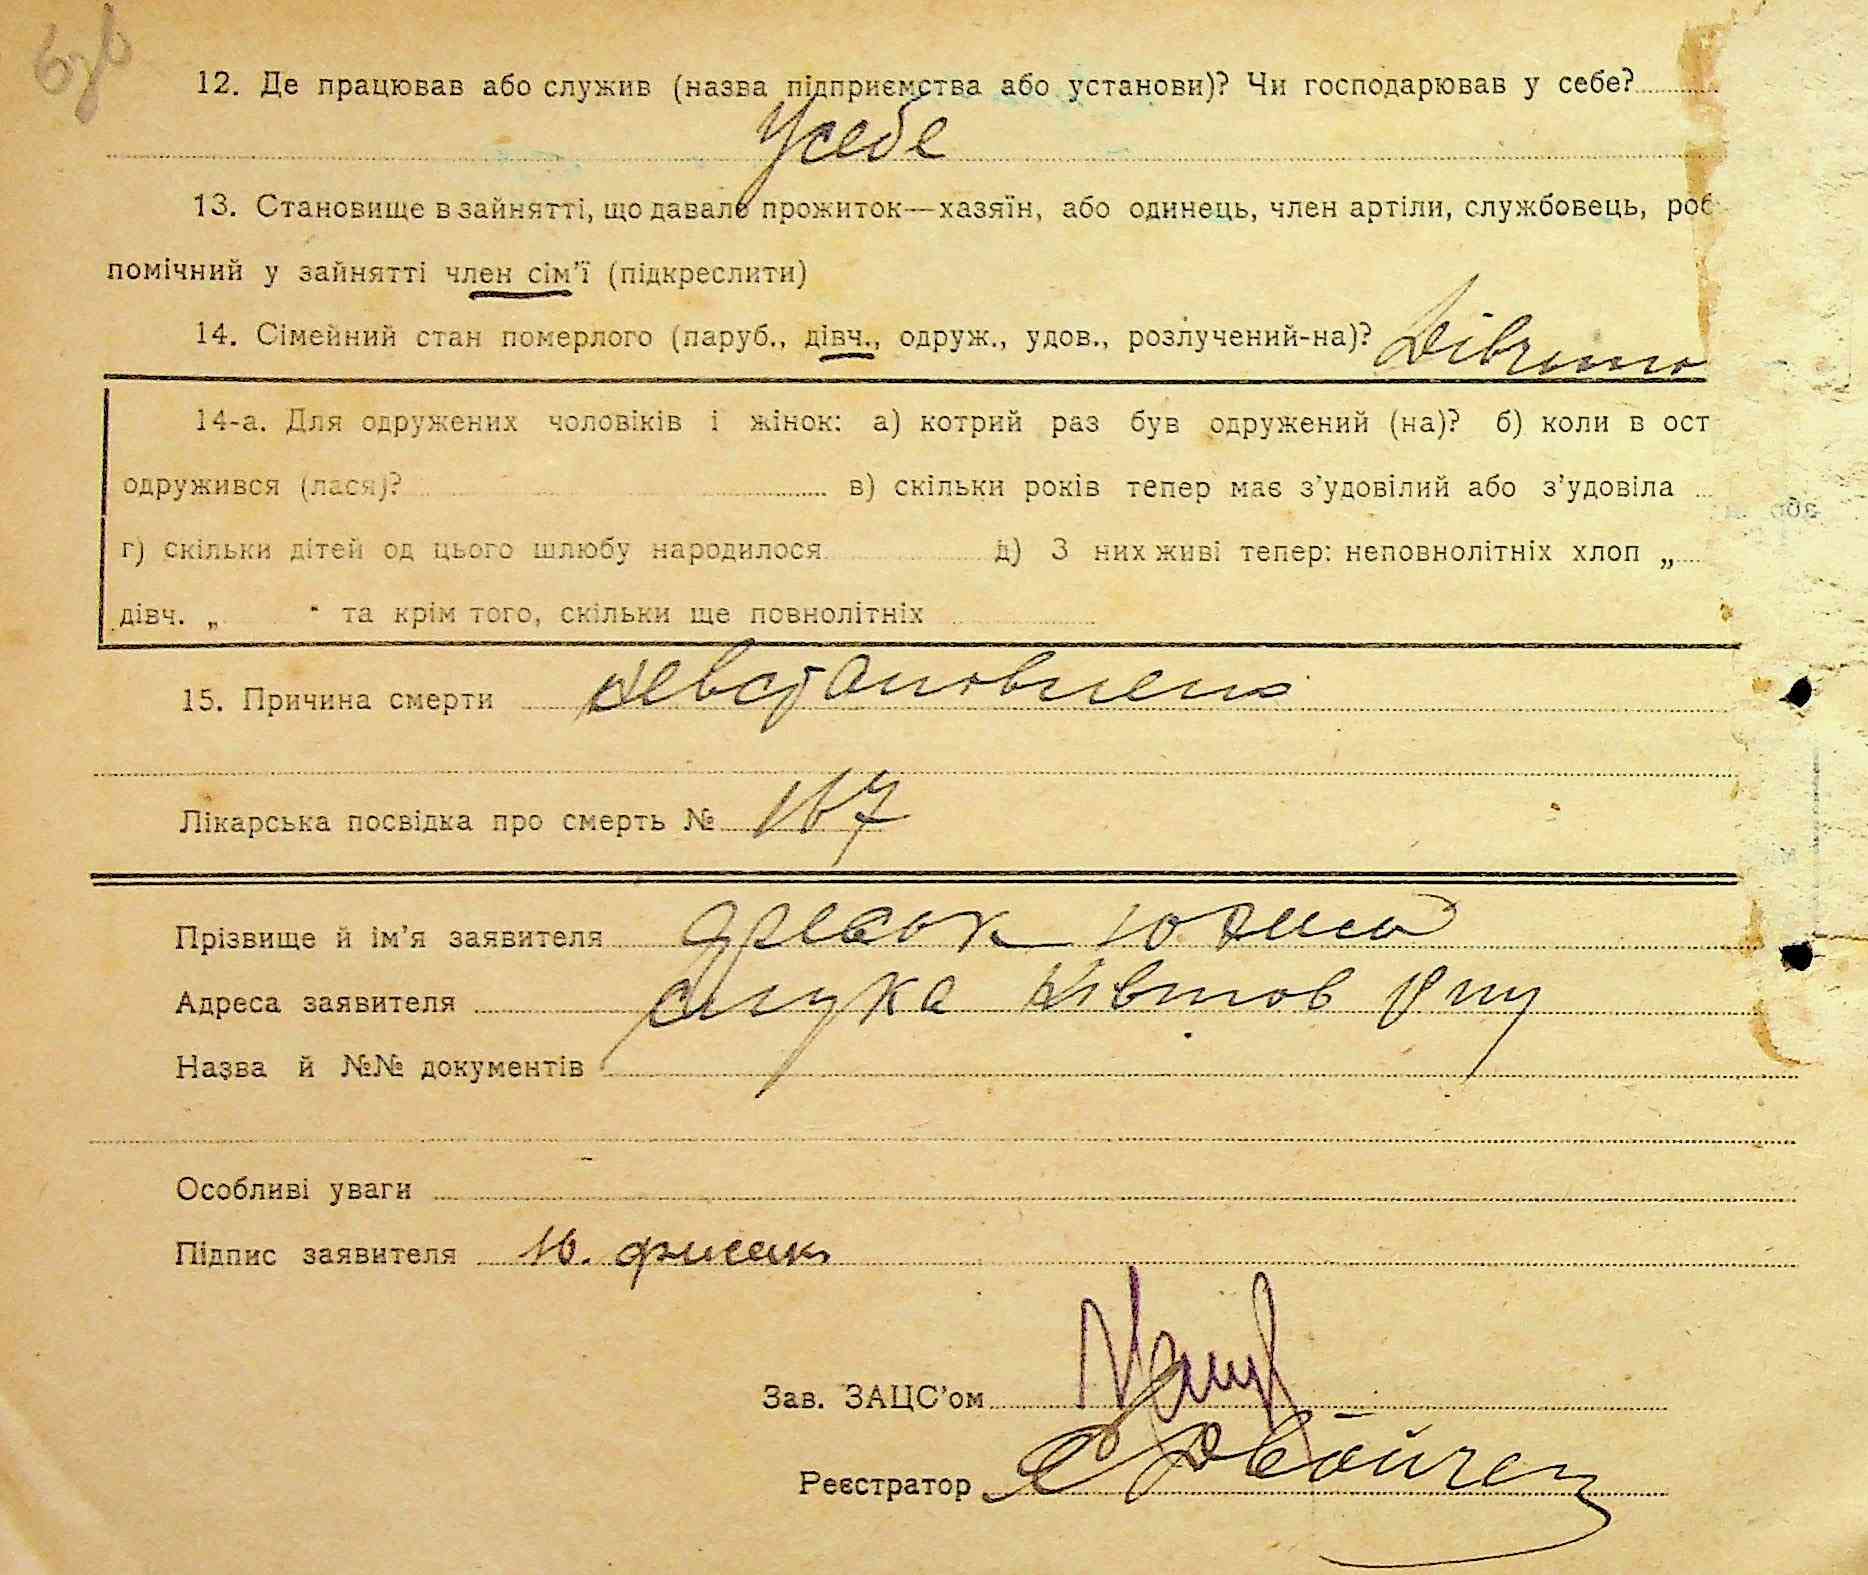 12. Де працював або служив (назва підприємства або установи)? Чи господарював у себе?
Усебе
13. Становище в зайнятті, що давало прожиток—хазяїн, або одинець, член артіли, службовець, роб
помічний у зайнятті член сім'ї (підкреслити)
14. Сімейний стан померлого (паруб., дівч., одруж., удов., розлучений-на)? Дівчина
14-а. Для одружених чоловіків і жінок: а) котрий раз був одружений (на)? б) коли в ост
одружився (лася)? в) скільки років тепер має з'удовілий або з'удовіла
г) скільки дітей од цього шлюбу народилося д) З них живі тепер: неповнолітніх хлоп „
дівч. „ " та крім того, скільки ще повнолітніх
15. Причина смерти невстановлена
Лікарська посвідка про смерть № 167
Прізвище й ім'я заявителя
Адреса заявителя
Назва й №№ документів
Особливі уваги
Підпис заявителя Ю.
Зав. ЗАЦС'ом
Реєстратор